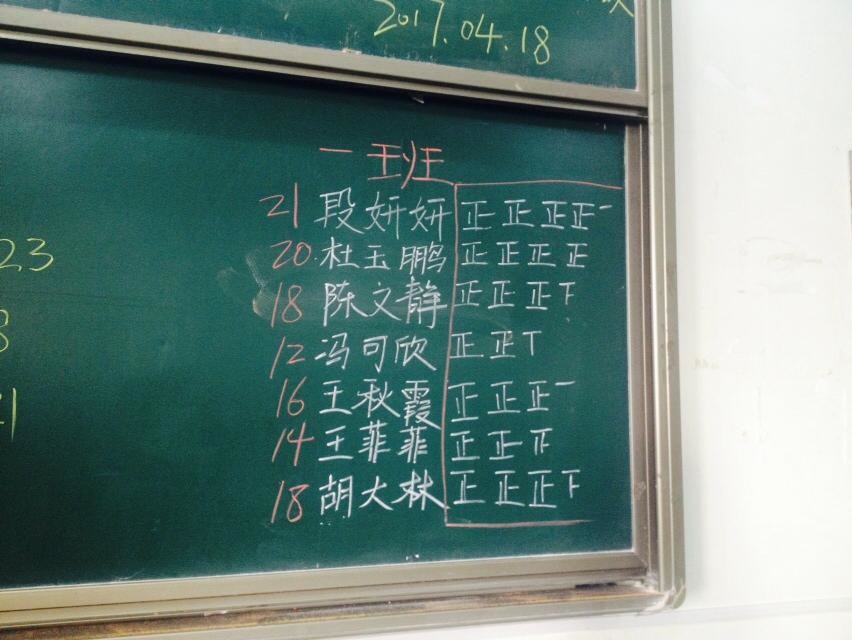 2017.04.18
一班
21 段妍妍 正正正正一
20 杜玉鹏 正正正正
18 陈文静 正正正下
12 冯可欣 正正丅
16 王秋霞 正正正一
14 王菲菲 正正
18 胡大林 正正正下
23